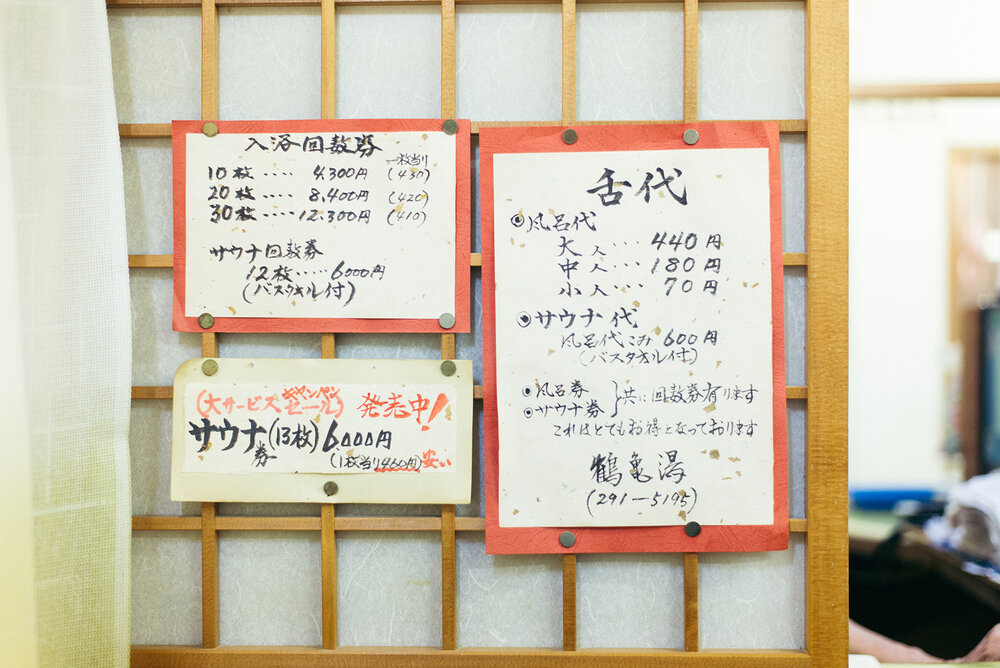 入浴回数券
一枚当り
10枚‥‥ 4,300円 (430)
20枚‥‥ 8,400円 (420)
30枚‥‥12,300円 (410)
サウナ回数券
12枚‥‥6000円
(バスタオル付)
(大サービスキャンペンセール) 発売中!
サウナ券(13枚)6,000円
(1枚当り460円)安い
舌代
◉風呂代
大人‥‥440円
中人‥‥180円
小人‥‥70円
◉サウナ代
風呂代こみ600円
(バスタオル付)
◉風呂券
◉サウナ券 }共に回数券有ります
これはとてもお得となっております
鶴亀湯
(291-5195)